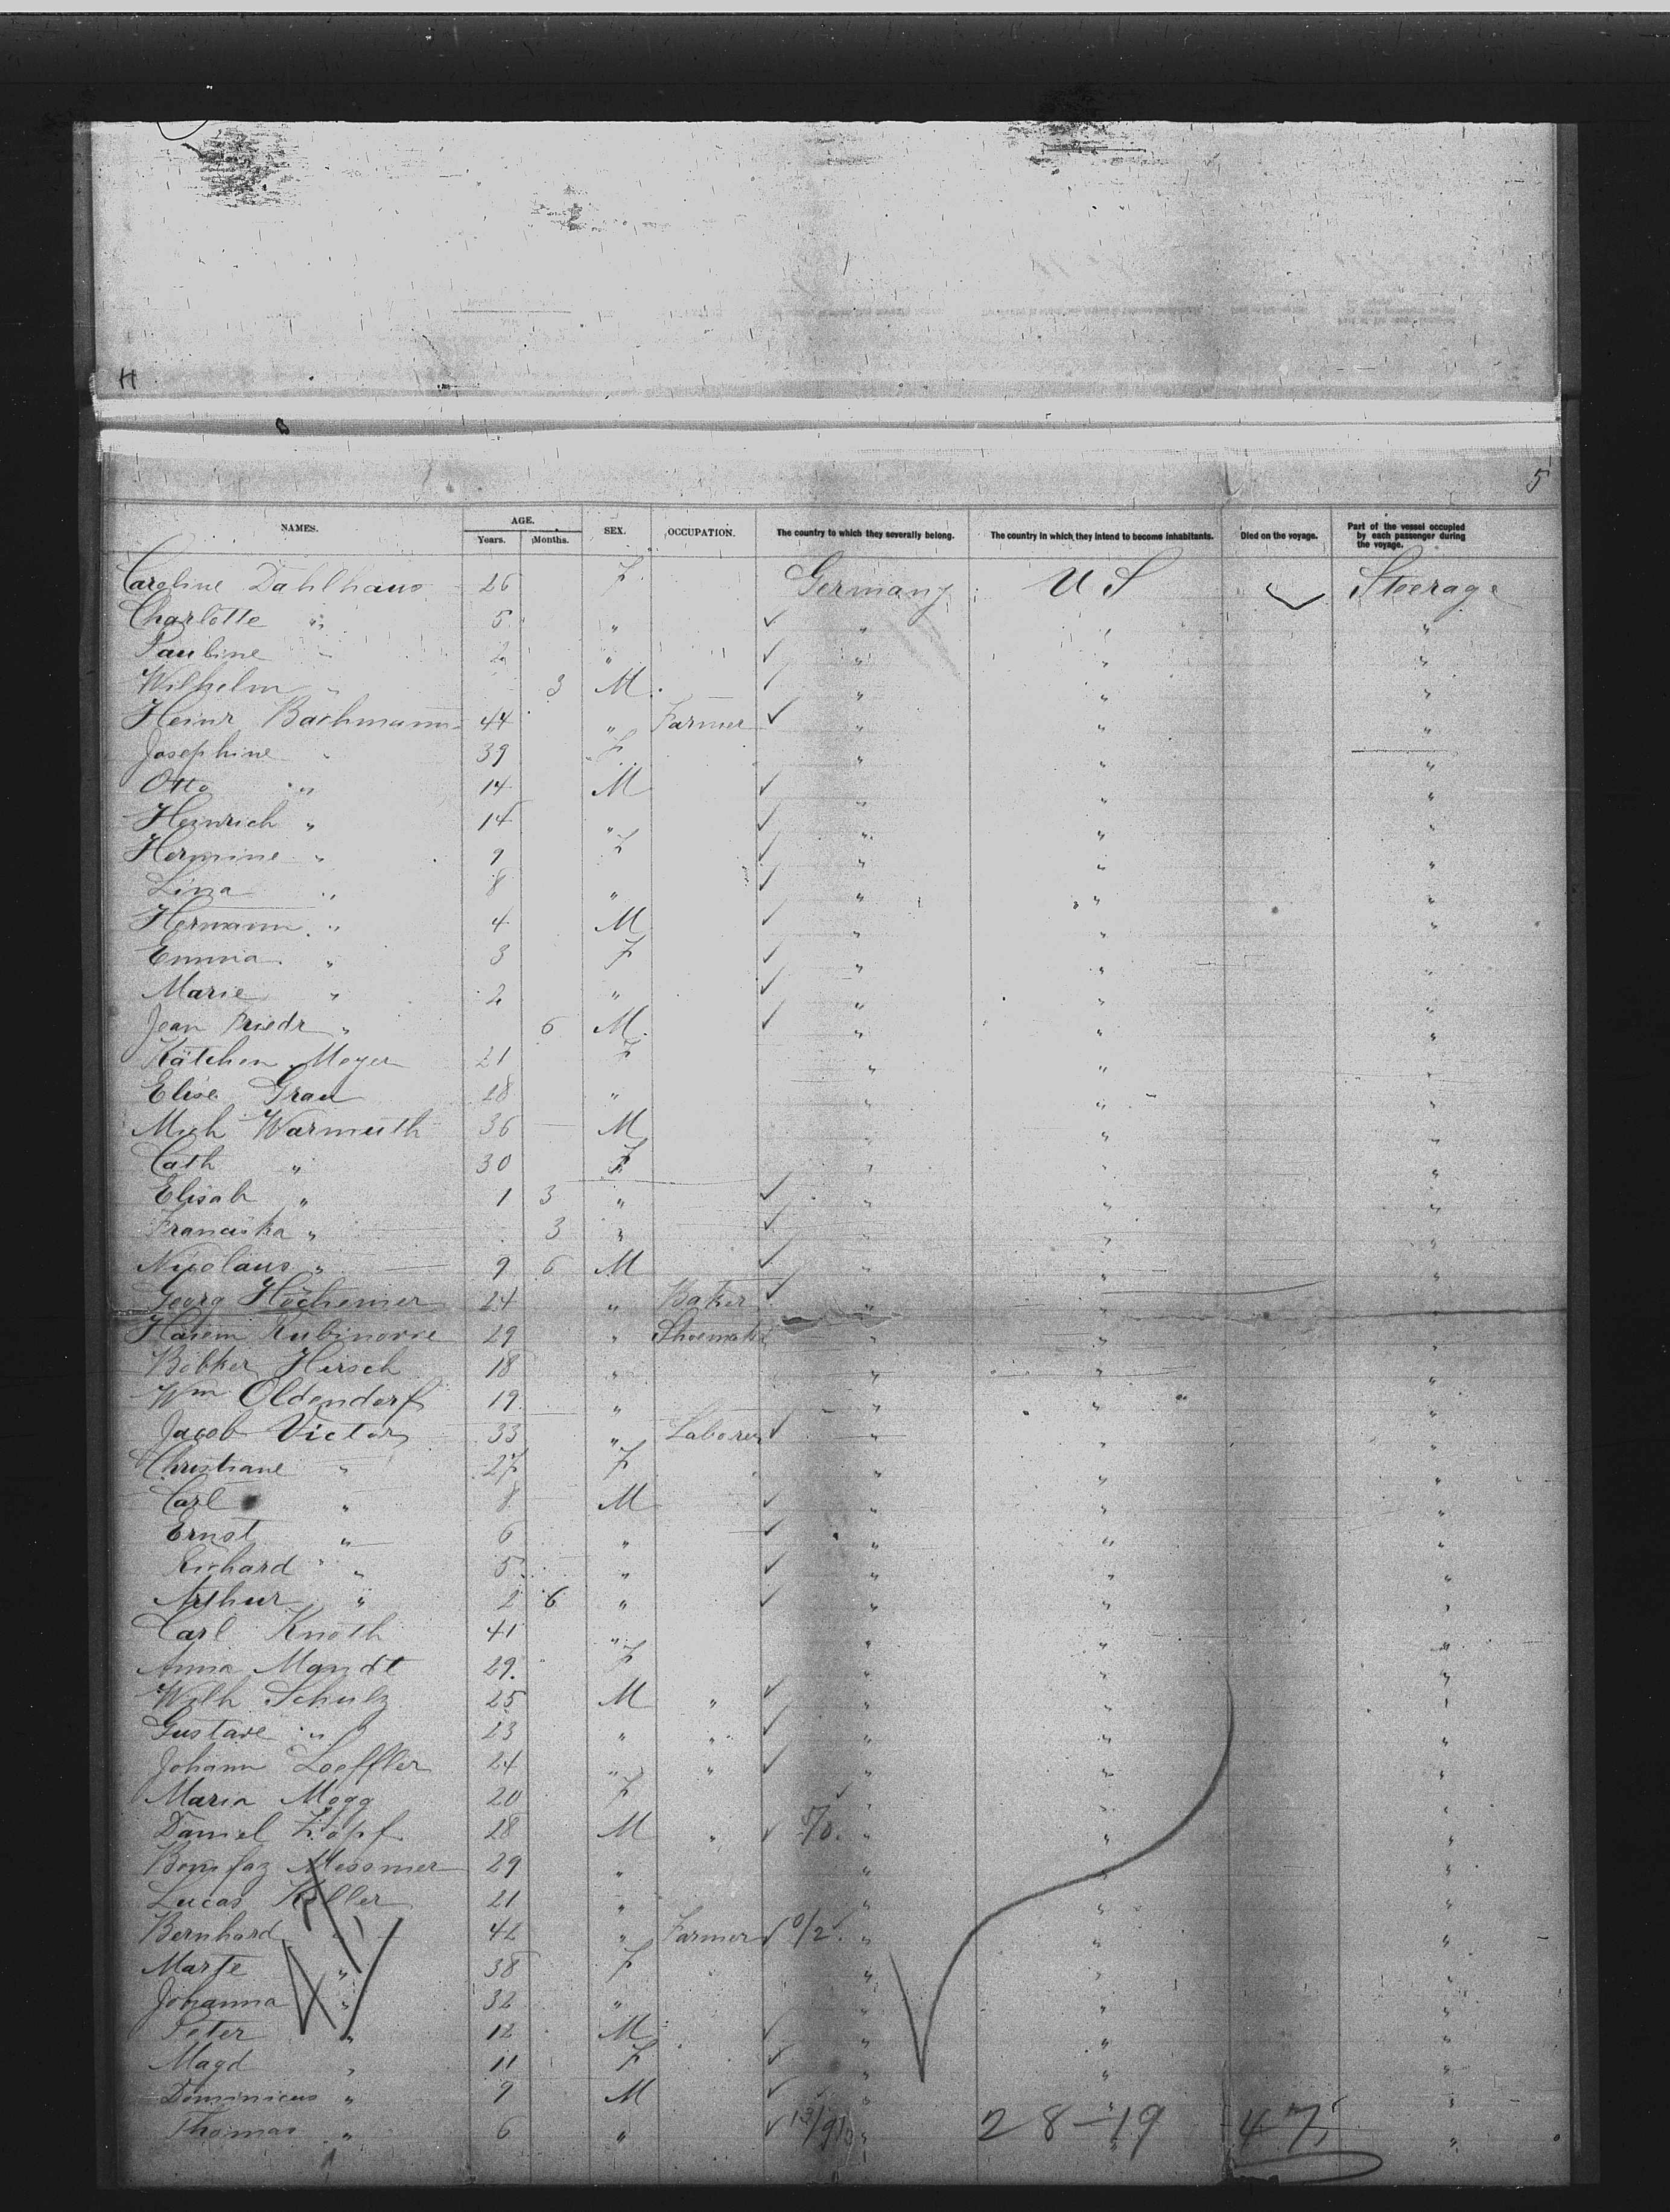 H
5
NAMES. AGE. SEX. OCCUPATION. The country to which they severally belong. The country in which they intend to become inhabitants. Died on the voyage. Part of the vessel occupied by each passenger during the voyage.
Years. Months.
Caroline Dahlhaus 26 F. Germany U S Steerage
Charlotte " 5 " ✓ " " "
Pauline " 2 " ✓ " " "
Wilhelm " 3 M. ✓ " " "
Heinr Bachmann 44 " Farmer ✓ " " "
Josephine " 39 F " " "
Otto " 14 M ✓ " " "
Heinrich " 14 " ✓ " " "
Hermine " 9 F ✓ " " "
Lina " 8 " ✓ " " "
Hermann " 4 M ✓ " " "
Emma " 3 F ✓ " " "
Marie " 2 " ✓ " " "
Jean Friedr " 6 M. ✓ " " "
Kätchen Meyer 21 F " " "
Elise Grau 18 " " " "
Mich Warmuth 36 M " " "
Cath " 30 F " " "
Elisab " 1 3 " ✓ " " "
Franciska " 3 " ✓ " " "
Nicolaus " 9 6 M ✓ " " "
Georg Höchemer 24 " Baker ✓ " " "
29 " Shoemaker " " "
Hirsch 18 " " " "
Wm Oldendorf 19 " " " "
Jacob Victor 33 " Laborer ✓ " " "
Christiane " 27 F " " "
Carl " 8 M ✓ " " "
Ernst " 6 " ✓ " " "
Richard " 5 " ✓ " " "
Arthur " 2 6 " ✓ " " "
Carl Knoth 41 " " " "
Anna Mandt 29 F " " "
Wilh Schulz 25 M " ✓ " " "
Gustave " 23 " " ✓ " " "
Johann Loeffler 24 " " ✓ " " "
Maria Mogg 20 F " " "
Daniel 28 M " ✓ " " "
Bonifaz Messmer 29 " " " "
Lucas Keller 21 " " " "
Bernhard " 42 " Farmer ✓ 0/2 " " "
" 38 F " " "
Johanna " 32 " " " "
Peter " 12 M ✓ " " "
Magd " 11 F ✓ " " "
Dominicus " 9 M ✓ " " "
Thomas " 6 " ✓ " " "
28-19 47